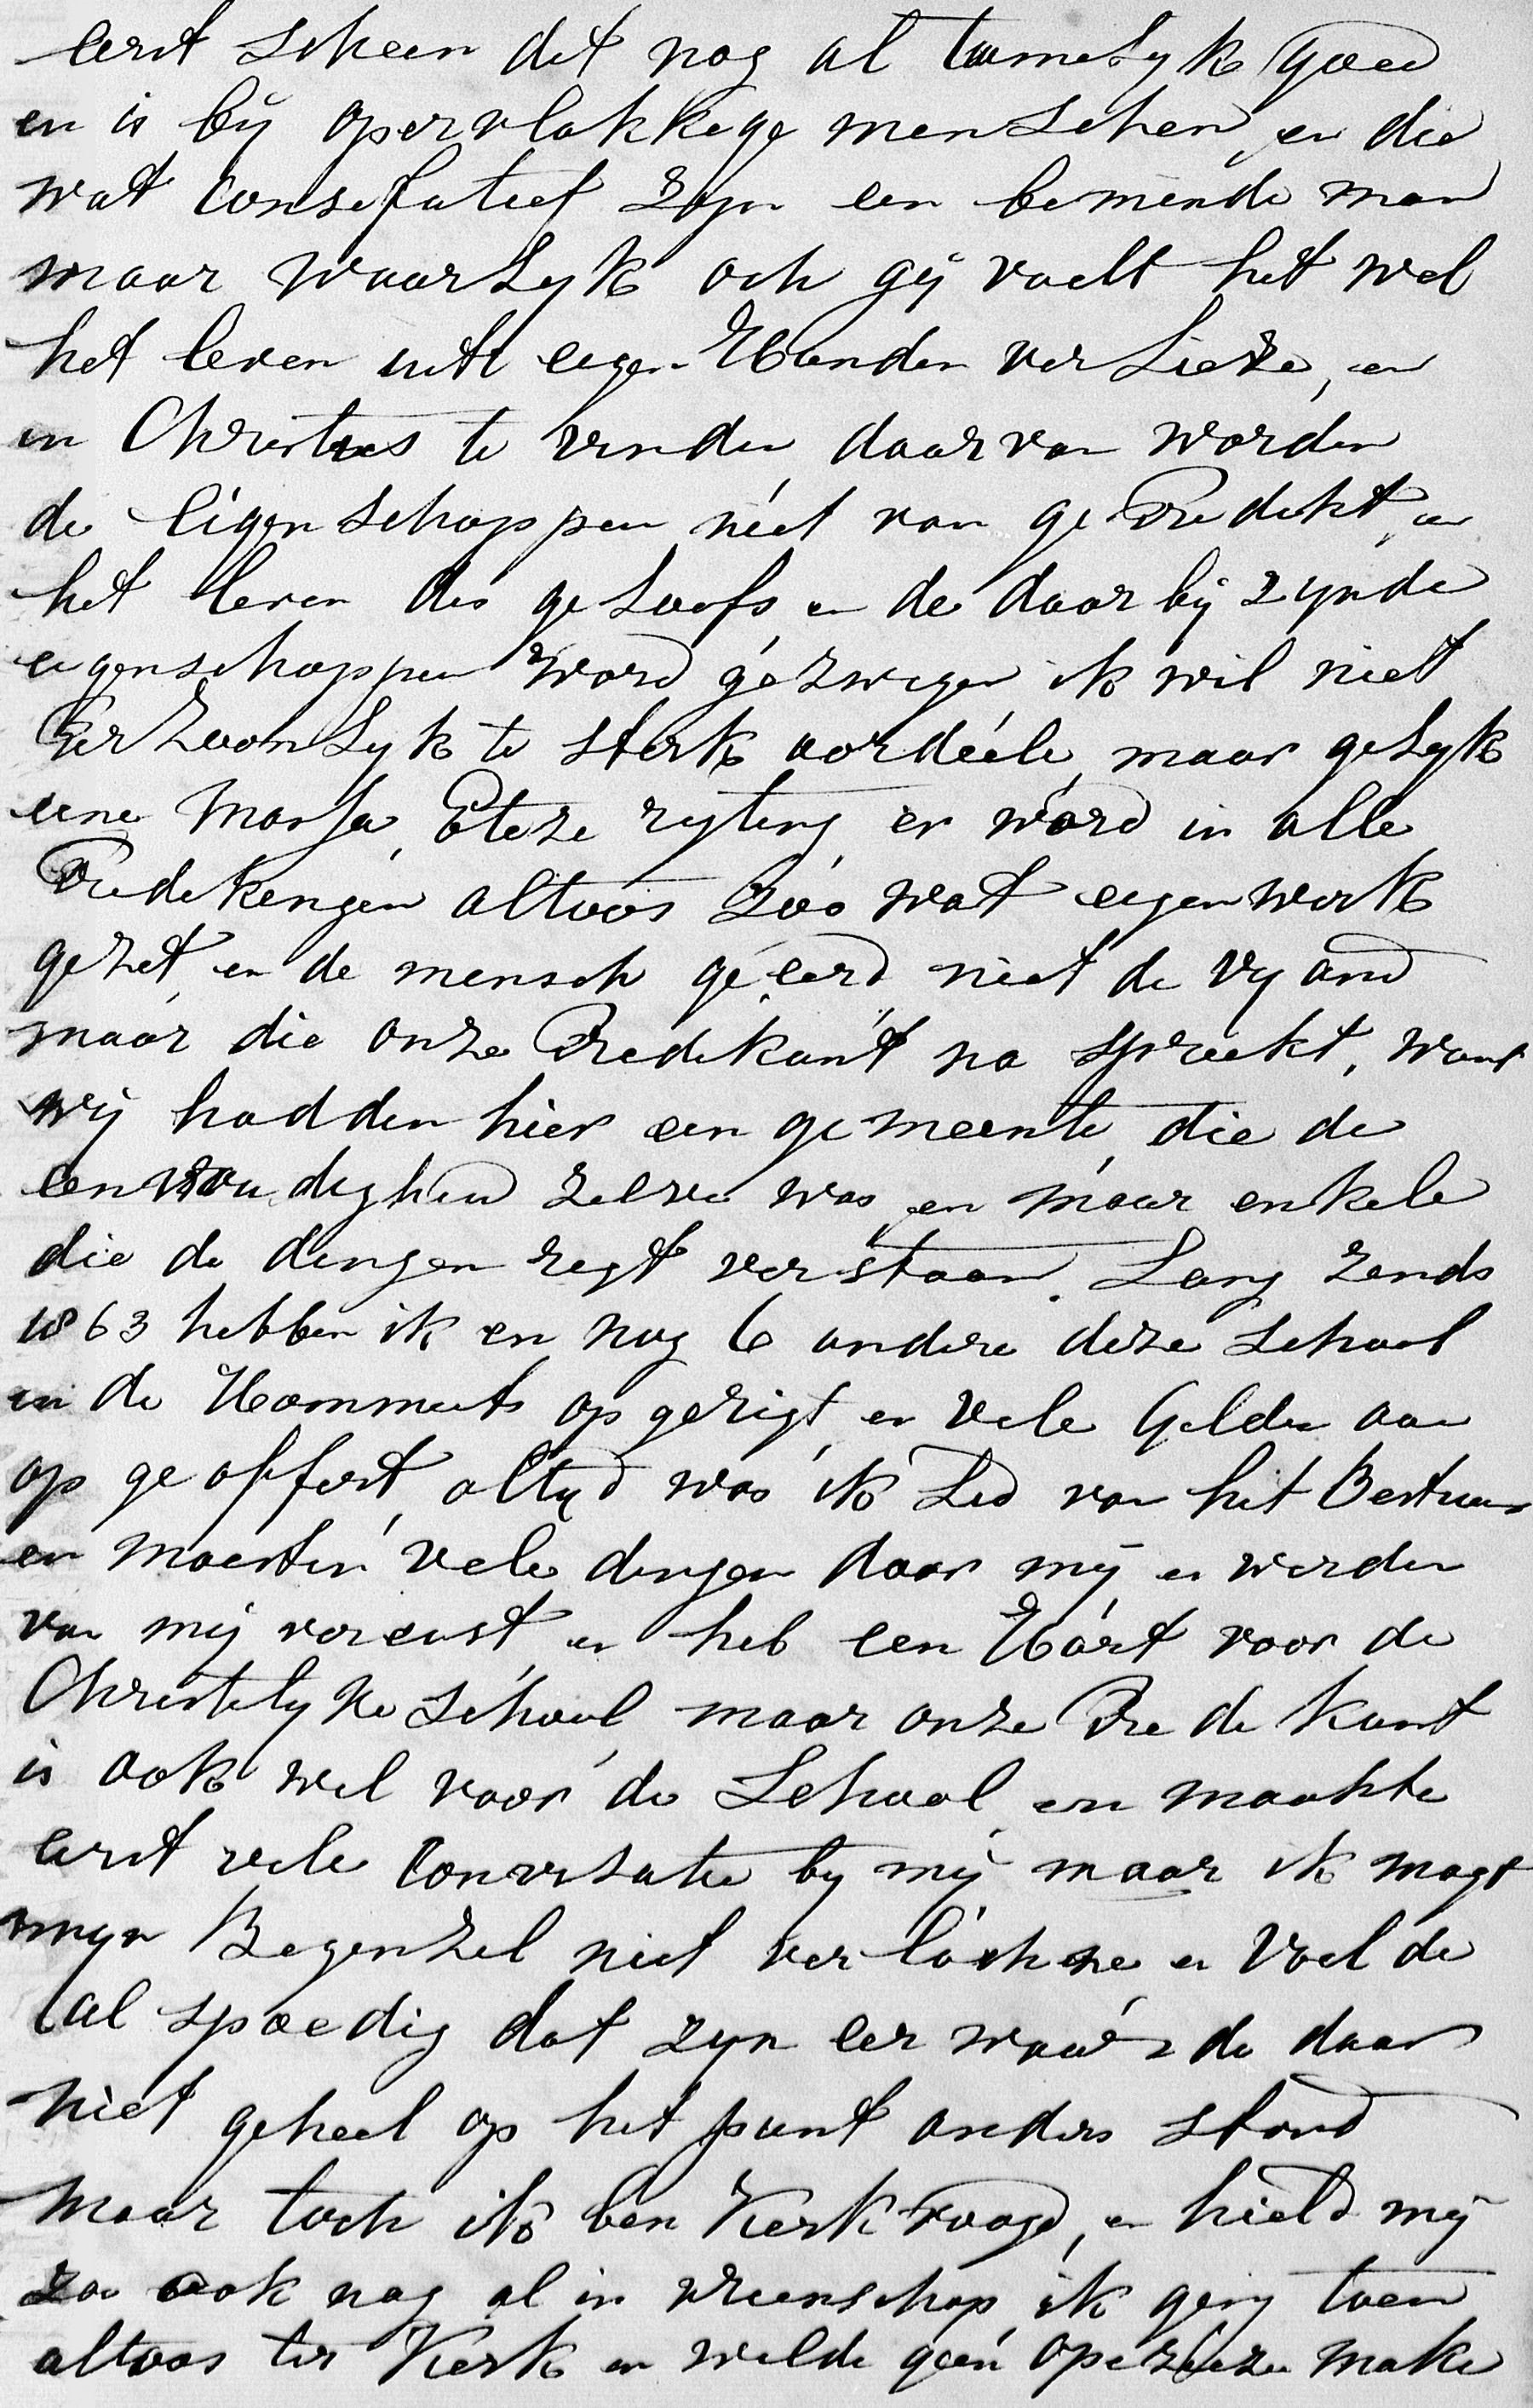 eerst scheen dit nog al tamelyk goed
en is bij opervlakkege menschen, en die
wat consefatief zyn een beminde man
maar waarlyk och gij voelt het wel
het leven uit eigen Handen verlieze, en
in Christus te vinden daarvan worden
de eigenschappen niet van gePredekt, en
het leven des geloofs en de daar bij zynde
eigenschappen word gezwegen ik wil niet
Perzoonlyk te sterk oordeele, maar gelyk
eene Etheze rigting er word in alle
Predekengen altoos zoo wat eigen werk
gezet, en de mensch geeerd niet de vyand
maar die onze Predekant na spreekt, want
wij hadden hier een gemeente, die de
eenvoudigheid zelve was, en maar enkele
die de dengen regt verstaan. Lang zends
1863 hebben ik en nog 6 andere deze School
in de Hommerts op gerigt, en vele Gelden aan
op geoffert, altyd was ik Lid van het Bestuur
en moesten vele dengen door mij en werden
van mij vereist, en heb een Hart voor de
Christelyke School, maar onze Predekant
is ook wel voor de School, en maakte
eerst vele Conversatie by mij maar ik magt
myn Begenzel niet verlochene en voelde
al spoedig dat zyn eerwaarde daar
niet geheel op het punt anders stond
maar toch ik ben Kerkvoogd, en hield mij
zoo ook nog al in vrienschap, ik geng toen
altoos ter Kerk en wilde geen opezieze make